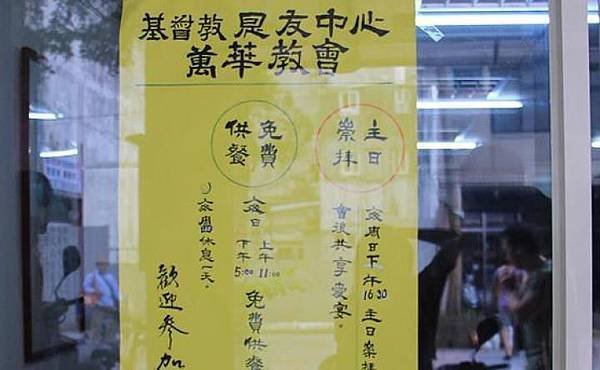 基督教恩友中心
萬華教會
主日
崇拜
每周日下午16:30 主日崇拜
會後共享愛宴。
免費
供餐
每日
上午11:00
下午5:00
免費供餐
每周休息一天。
歡迎參加